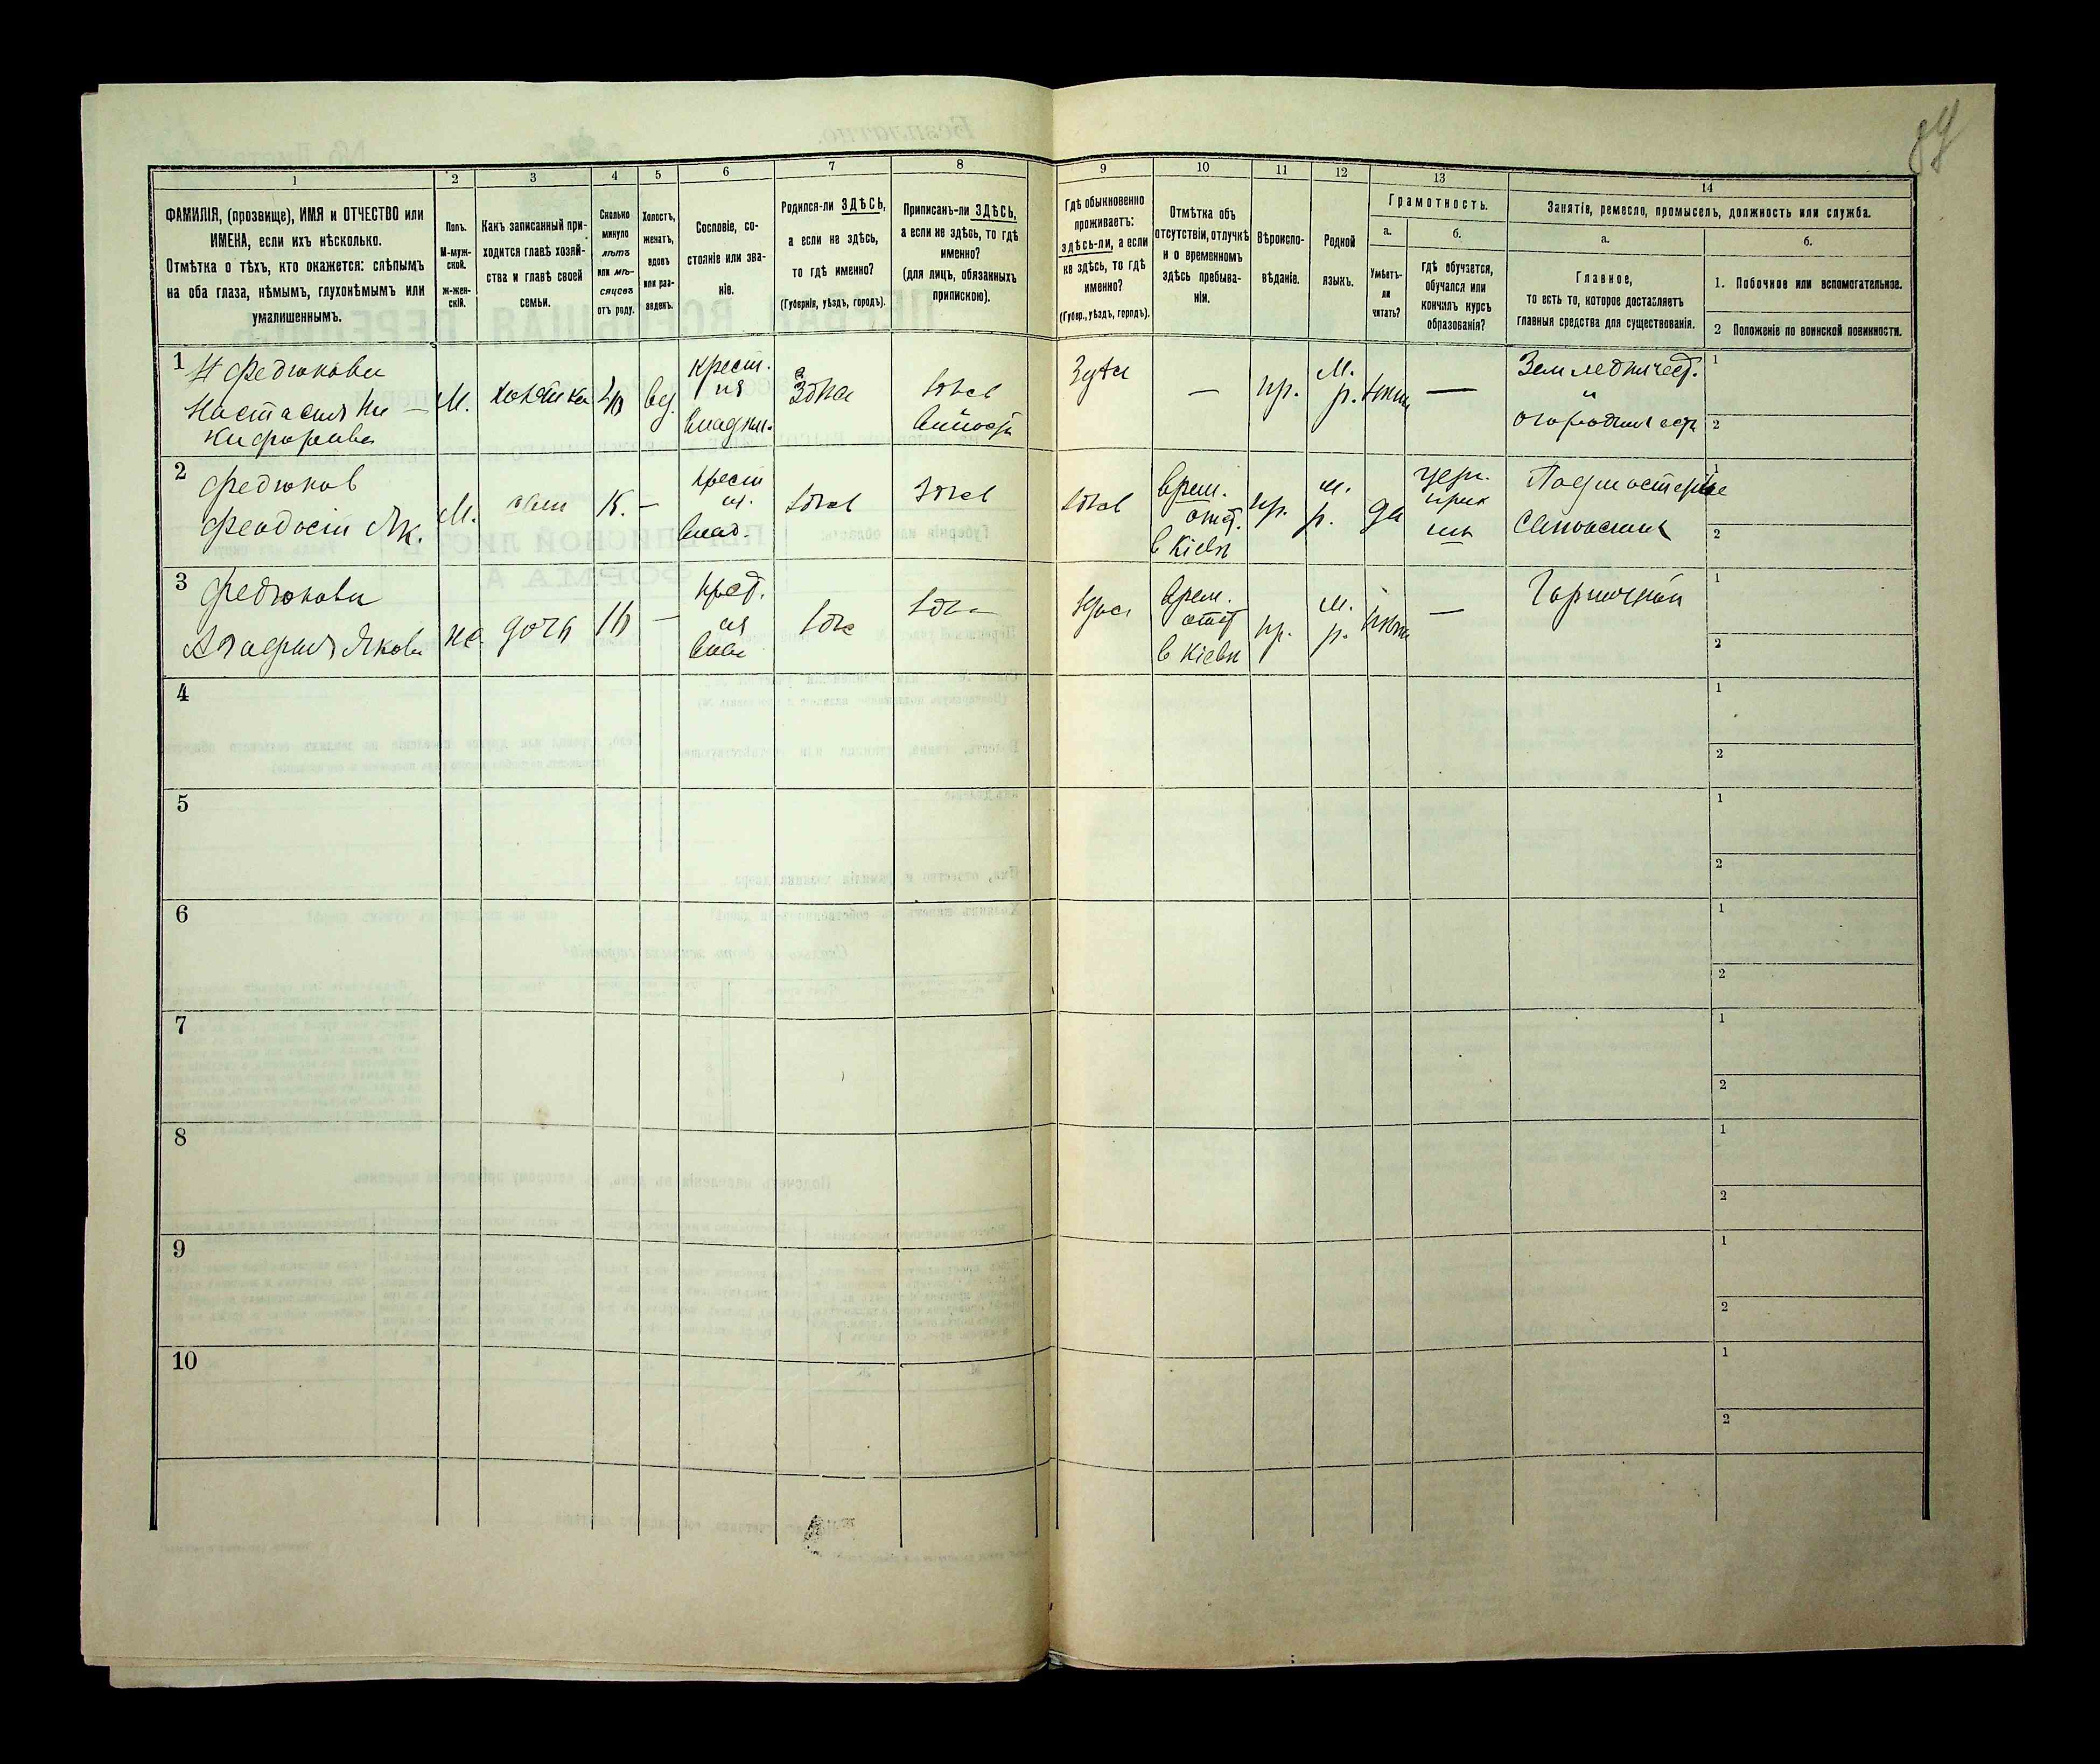 89
1
2
3
4
5
6
7
8
9
10
11
12
13
14
ФАМИЛІЯ, (прозвище), ИМЯ и ОТЧЕСТВО или
ИМЕНА, если ихъ нѣсколько.
Отмѣтка о тѣхъ, кто окажется: слѣпымъ
на оба глаза, нѣмымъ, глухонѣмымъ или
умалишеннымъ.
Полъ.
М-муж-
ской.
ж-жен-
скій.
Какъ записанный при-
ходится главѣ хозяй-
ства и главѣ своей
семьи.
Сколько
минуло
лѣтъ
или мѣ-
сяцевъ
отъ роду.
Холостъ,
женатъ,
вдовъ
или раз-
веденъ.
Сословіе, со-
стояніе или зва-
ніе.
Родился-ли ЗДѢСЬ,
а если не здѣсь,
то гдѣ именно?
(Губернія, уѣздъ, городъ).
Приписанъ-ли ЗДѢСЬ,
а если не здѣсь, то гдѣ
именно?
(для лицъ, обязанныхъ
припискою).
Гдѣ обыкновенно
проживаетъ:
здѣсь-ли, а если
не здѣсь, то гдѣ
именно?
(Губер., уѣздъ, городъ).
Отмѣтка объ
отсутствіи, отлучкѣ
и о временномъ
здѣсь пребыва-
ніи.
Вѣроиспо-
вѣданіе.
Родной
языкъ.
Грамотность.
а.
Умѣетъ-
ли
читать?
б.
гдѣ обучается,
обучался или
кончилъ курсъ
образованія?
Занятіе, ремесло, промыселъ, должность или служба.
а.
Главное,
то есть то, которое доставляетъ
главныя средства для существованія.
б.
1. Побочное или вспомогательное.
2 Положеніе по воинской повинности.
1
Федюкова
Настасия Ни
кифорова
М.
хозяйка
40
вд.
крест.
из
владѣл.
—
пр.
М.
р.
нѣт
—
Земледѣлчест.
и
1
2
2
Федюков
Феодосій Як.
М.
сын
15.
—
крест
из.
влад.
врем.
отст.
в Кіевѣ
пр.
м.
р.
да
церк.
прих
шк
Подмастерье
1
2
3
Федюкова
Агафия Якова
же.
дочь
16
—
крест.
из
врем.
отст
в Кіевѣ
пр.
м.
р.
нѣт
—
Горничной
1
2
4
1
2
5
1
2
6
1
2
7
1
2
8
1
2
9
1
2
10
1
2